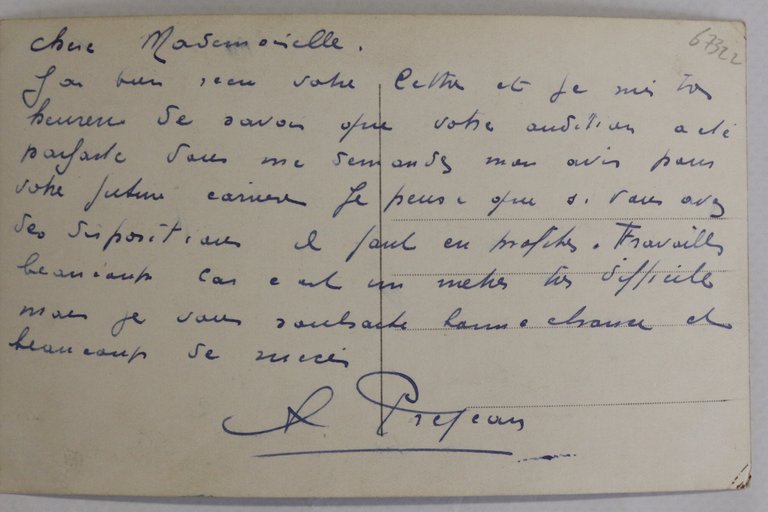 67322
Chere Mademoiselle.
J'ai bien recu votre lettre et je suis tres
heureux de savoir que votre audition a été
parfaite Vous me demandez mon avis pour
votre future carriere Je pense que si vous avez
des dispositions il faut en profiter. Travaillez
beaucoup car c'est un metier tres difficile
mais je vous souhaite bonne chance et
beaucoup de succès
A Prejean